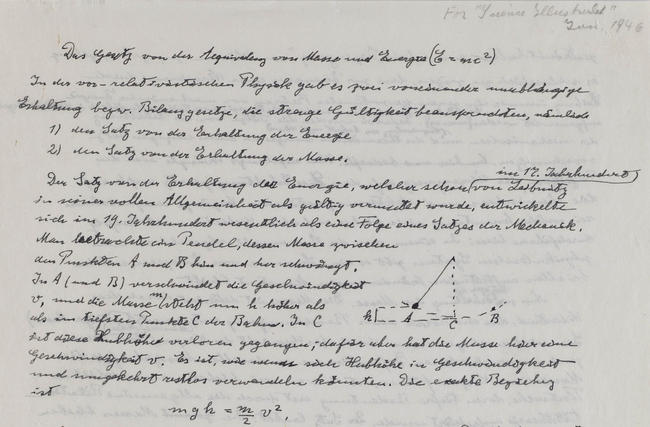 For "Science Illustrated"
Jan. 1946
Das Gesetz von der Aequivalenz von Masse und Energie (E = mc²)
In der vor-relativistischen Physik gab es zwei voneinander unabhängige
Erhaltung bezw. Bilanzgesetze, die strenge Gültigkeit beanspruchten, nämlich
1) den Satz von der Erhaltung der Energie
2) den Satz von der Erhaltung der Masse.
im 17. Jahrhundert
Der Satz von der Erhaltung der Energie, welcher schon von Leibnitz
in seiner vollen Allgemeinheit als gültig vermutet wurde, entwickelte
sich im 19. Jahrhundert wesentlich als eine Folge eines Satzes der Mechanik.
Man betrachte ein Pendel, dessen Masse zwischen
den Punkten A und B hin und her schwingt.
In A (und B) verschwindet die Geschwindigkeit
v, und die Masse m steht um h höher als
als im tiefsten Punkte C der Bahn. In C
ist diese Hubhöhe verloren gegangen; dafür aber hat die Masse hier eine
Geschwindigkeit v. Es ist, wie wenn sich Hubhöhe in Geschwindigkeit
und umgekehrt restlos verwandeln könnten. Die exakte Beziehung
ist
h A C B
mgh = m/2 v²,